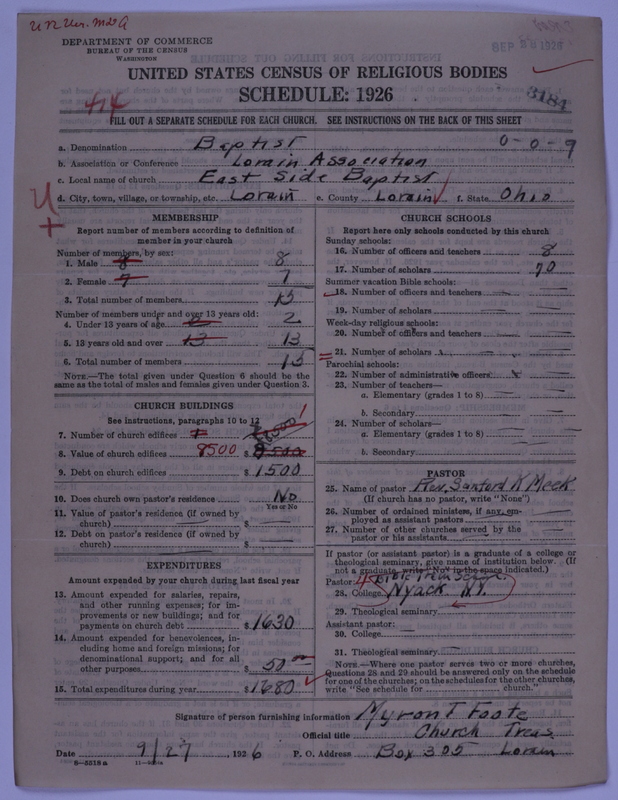 DEPARTMENT OF COMMERCE
BUREAU OF THE CENSUS
WASHINGTON
SEP 1926
UNITED STATES CENSUS OF RELIGIOUS BODIES
SCHEDULE: 1926
3184
414
FILL OUT A SEPARATE SCHEDULE FOR EACH CHURCH. SEE INSTRUCTIONS ON THE BACK OF THIS SHEET
a. Denomination Baptist 0-0-9
b. Association or Conference Lorain Association
c. Local name of church East Side Baptist
d. City, town, village, or township, etc. Lorain e. County Lorain f. State Ohio
MEMBERSHIP
Report number of members according to definition of
member in your church
Number of members, by sex:
1. Male 8 8
2. Female 7 7
3. Total number of members 15
Number of members under and over 13 years old:
4. Under 13 years of age 2
5. 13 years old and over 13 13
6. Total number of members 15
NOTE.—The total given under Question 6 should be the
same as the total of males and females given under Question 3.
CHURCH BUILDINGS
See instructions, paragraphs 10 to 12
7. Number of church edifices 1
8. Value of church edifices 8500 $ 8500
9. Debt on church edifices $ 1500
10. Does church own pastor's residence No
Yes or No
11. Value of pastor's residence (if owned by
church) $
12. Debt on pastor's residence (if owned by
church) $
EXPENDITURES
Amount expended by your church during last fiscal year
13. Amount expended for salaries, repairs,
and other running expenses; for im-
provements or new buildings; and for
payments on church debt $ 1630
14. Amount expended for benevolences, in-
cluding home and foreign missions; for
denominational support; and for all
other purposes $ 50
15. Total expenditures during year $ 1680
CHURCH SCHOOLS
Report here only schools conducted by this church
Sunday schools:
16. Number of officers and teachers 8
17. Number of scholars 70
Summer vacation Bible schools:
18. Number of officers and teachers
19. Number of scholars
Week-day religious schools:
20. Number of officers and teachers
21. Number of scholars
Parochial schools:
22. Number of administrative officers
23. Number of teachers—
a. Elementary (grades 1 to 8)
b. Secondary
24. Number of scholars—
a. Elementary (grades 1 to 8)
b. Secondary
PASTOR
25. Name of pastor Rev. Sanford K Meek
(If church has no pastor, write "None")
26. Number of ordained ministers, if any, em-
ployed as assistant pastors
27. Number of other churches served by the
pastor or his assistants
If pastor (or assistant pastor) is a graduate of a college or
theological seminary, give name of institution below. (If
not a graduate, write "No" in the space indicated.)
Pastor: Bible Train School
28. College Nyack N.Y.
29. Theological seminary
Assistant pastor:
30. College
31. Theological seminary
NOTE.—Where one pastor serves two or more churches,
Questions 28 and 29 should be answered only on the schedule
for one of the churches; on the schedules for the other churches,
write "See schedule for church."
Signature of person furnishing information Myron T Foote
Official title Church Treas.
Date 9/27, 1926 P. O. Address Box 305 Lorain
8-5518a